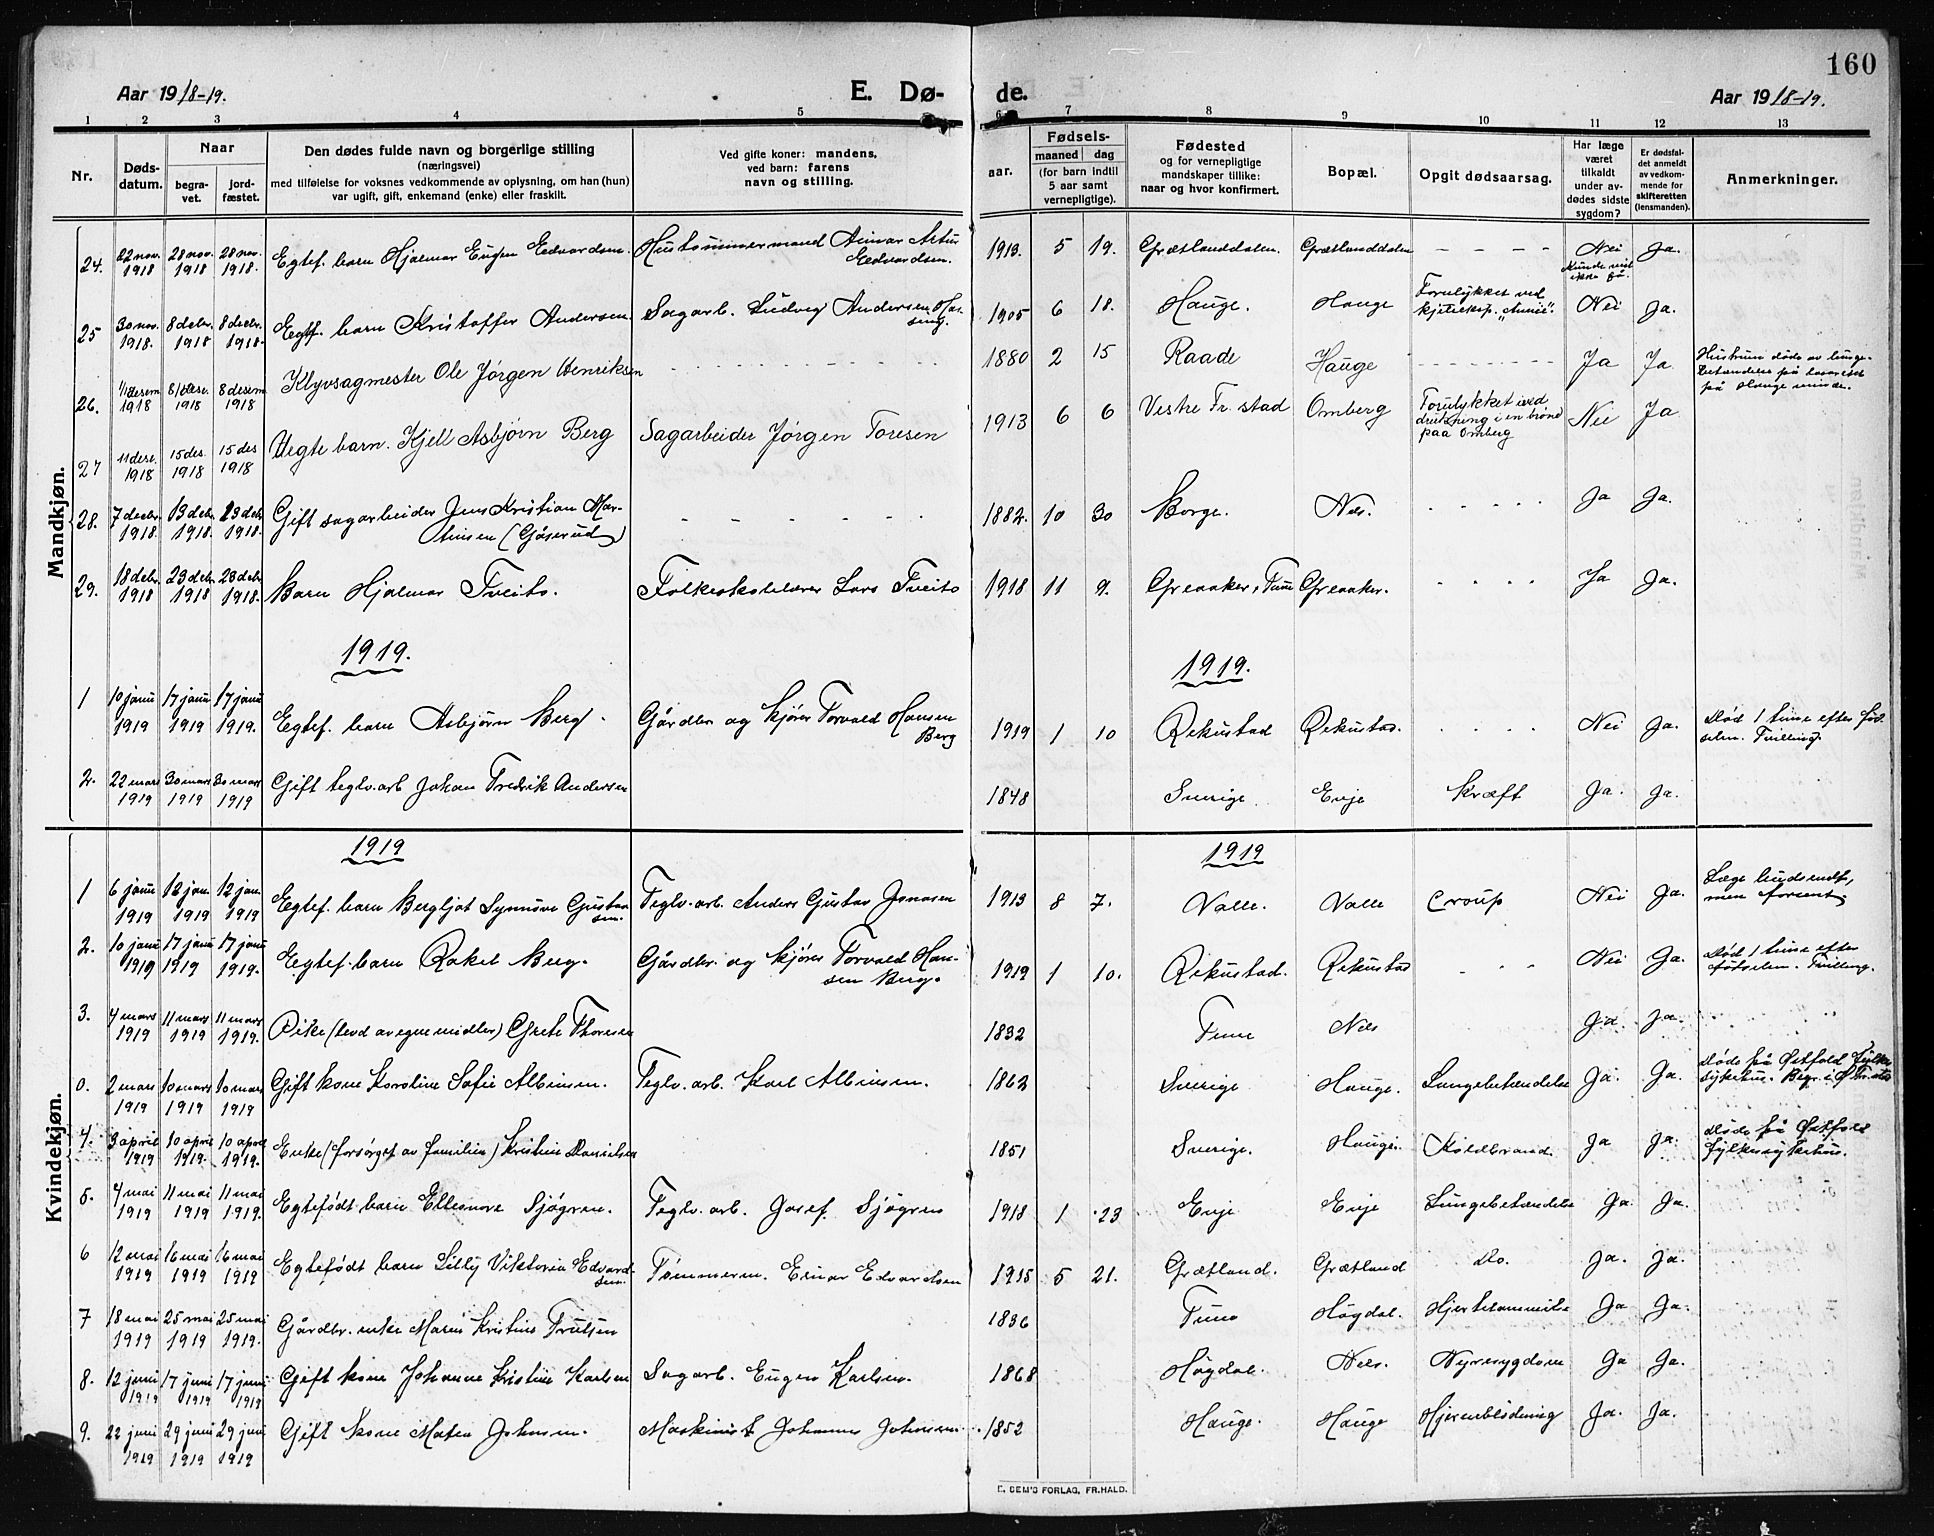 160
Aar 1918-19.
E. Dø-
de.
Aar 1918-19.
1 2 3 4 5 6 7 8 9 10 11 12 13
Nr.
Døds-
datum.
Naar
begra-
vet.
jord-
fæstet.
Den dødes fulde navn og borgerlige stilling
(næringsvei)
med tilføielse for voksnes vedkommende av oplysning, om han (hun)
var ugift, gift, enkemand (enke) eller fraskilt.
Ved gifte koner: mandens,
ved barn: farens
navn og stilling.
aar.
Fødsels-
maaned
dag
(for barn indtil
5 aar samt
vernepligtige).
Fødested
og for vernepligtige
mandskaper tillike:
naar og hvor konfirmert.
Bopæl.
Opgit dødsaarsag.
Har læge
været
tilkaldt
under av-
dødes sidste
sygdom?
Er dødsfal-
det anmeldt
av vedkom-
mende for
skifteretten
(lensmanden).
Anmerkninger.
Mandkjøn.
24. 22 nov. 1918 28 nov. 1918 28 nov. 1918. Egtef. barn Hjalmar Eugen Edvardsen. Hustømmermand Arthur
Edvardsen. 1913. 5 19. Grætlanddalen. Grætlanddalen - - - - Nei Ja.
25 30 nov. 1918. 8 decbr. 1918 8 decbr. 1918. Egtf. barn Kristoffer Andersen. Sagarb. Ludvig Andersen 1905 6 18. Hauge. Hauge Forulykket ved
Nei Ja.
26. 1/1 desem 1918 8/ dese. 1918 8 desem 1918 Klyvsagmester Ole Jørgen Henriksen - - - - 1880 2 15 Raade Hauge - - - - Ja Ja Hustrun døde av lunge-
betændelse på lasarettet
på Hauge
27 11 dese. 1918 15 des. 1918 15 des 1918 Uegte barn. Kjell Asbjørn Berg Sagarbeider Jørgen Toresen 1913 6 6 Vestre Fr. stad Omberg Forulykket ved
drukning i en brønd
paa Omberg Nei Ja
28. 7 decbr. 1918. 13 debr. 1918. 23 debr. 1918. Gift sagarbeider Jens Kristian Mar-
tinsen (Gåserud) - - - - 1882. 10 30 Borge. Nes. - - - - Ja Ja.
29. 18 debr. 1918 23 debr. 1918 23 debr. 1918. Barn Hjalmar Tveito. Folkeskolelærer Lars Tveito 1918 11 9. Greaaker, Tune Greaaker. - - - - Ja Ja.
1919. 1919.
1 10 janu 1919 17 janu 1919 17 janu 1919. Egtef. barn Asbjørn Berg. Gårdbr. og kjører Torvald Hansen
Berg 1919 1 10 Rekustad Rekustad. - - - - Nei Ja. Død 1 time efter fød-
selen. Tvilling.
2. 22 mars 1919 30 mars 1919 30 mars 1919 Gift teglv.arb Johan Fredrik Andersen 1848 Sverige. Evje Kræft Ja. Ja.
Kvindekjøn.
1919 1919
1 6 janu 1919 12 jan. 1919 12 jan. 1919 Egtef. barn Bergljot Synnøve Gustav
sen. Teglv. arb. Anders Gustav Jonasen 1913 8 7. Valle. Valle Croup Nei Ja. Læge budsendt,
men forsent
2. 10 janu 1919 17 janu 1919 17 janu 1919. Egtef. barn Rakel Berg. Gårdbr. og kjører Torvald Han-
sen Berg. 1919 1 10. Rekustad. Rekustad - - - Nei Ja. Død 1 time efter
fødselen. Tvilling.
3. 4 mars 1919 11 mars 1919 11 mars 1919. Pike (levd av egne midler) Grete Thoresen 1832 Tune Nes Ja. Ja.
0. 2 mars 1919 10 mars 1919 10 mars 1919 Gift kone Karoline Sofie Albinsen. Teglv. arb. Karl Albinsen. 1862 Sverige. Hauge. Lungebetændelse Ja. Ja. Døde på Østfold fylkes
sykehus. Begr. i Ø. Fr.stad
4. 3 april 1919 10 april 1919. 10 april 1919. Enke (forsørget av familien) Kristine Danielsen 1851 Sverige. Hauge. Koldbrand. Ja Ja. Døde på Østfold
fylkessykehus.
5. 4 mai 1919 11 mai 1919 11 mai 1919. Egtefødt barn Elleonore Sjøgren. Teglv. arb. Josef Sjøgren 1918 1 23 Evje Evje Lungebetændelse Ja. Ja.
6 12 mai 1919 16 mai 1919 16 mai 1919 Egtefødt barn Lilly Viktoria Edvard-
sen. Tømmerm. Einar Edvardsen 1915 5 21. Grætland. Grætland Do. Ja. Ja.
7 18 mai 1919 25 mai 1919 25 mai 1919. Gårdbr. enke Maren Kristine Trulsen 1836 Tune Høgdal. Hjertelammelse Ja Ja.
8. 12 juni 1919 17 juni 1919 17 juni 1919 Gift kone Johanne Kristine Karlsen Sagarb. Eugen Karlsen. 1868 Høgdal. Nes. Nyresygdom Ja Ja.
9. 22 juni 1919 29 juni 1919 29 juni 1919 Gift Kone Matea Johnsen. Maskinist Johannes Johnsen 1852 Hauge. Hauge Hjerneblødning Ja. Ja.
E. SEM'S FORLAG, FR.HALD.